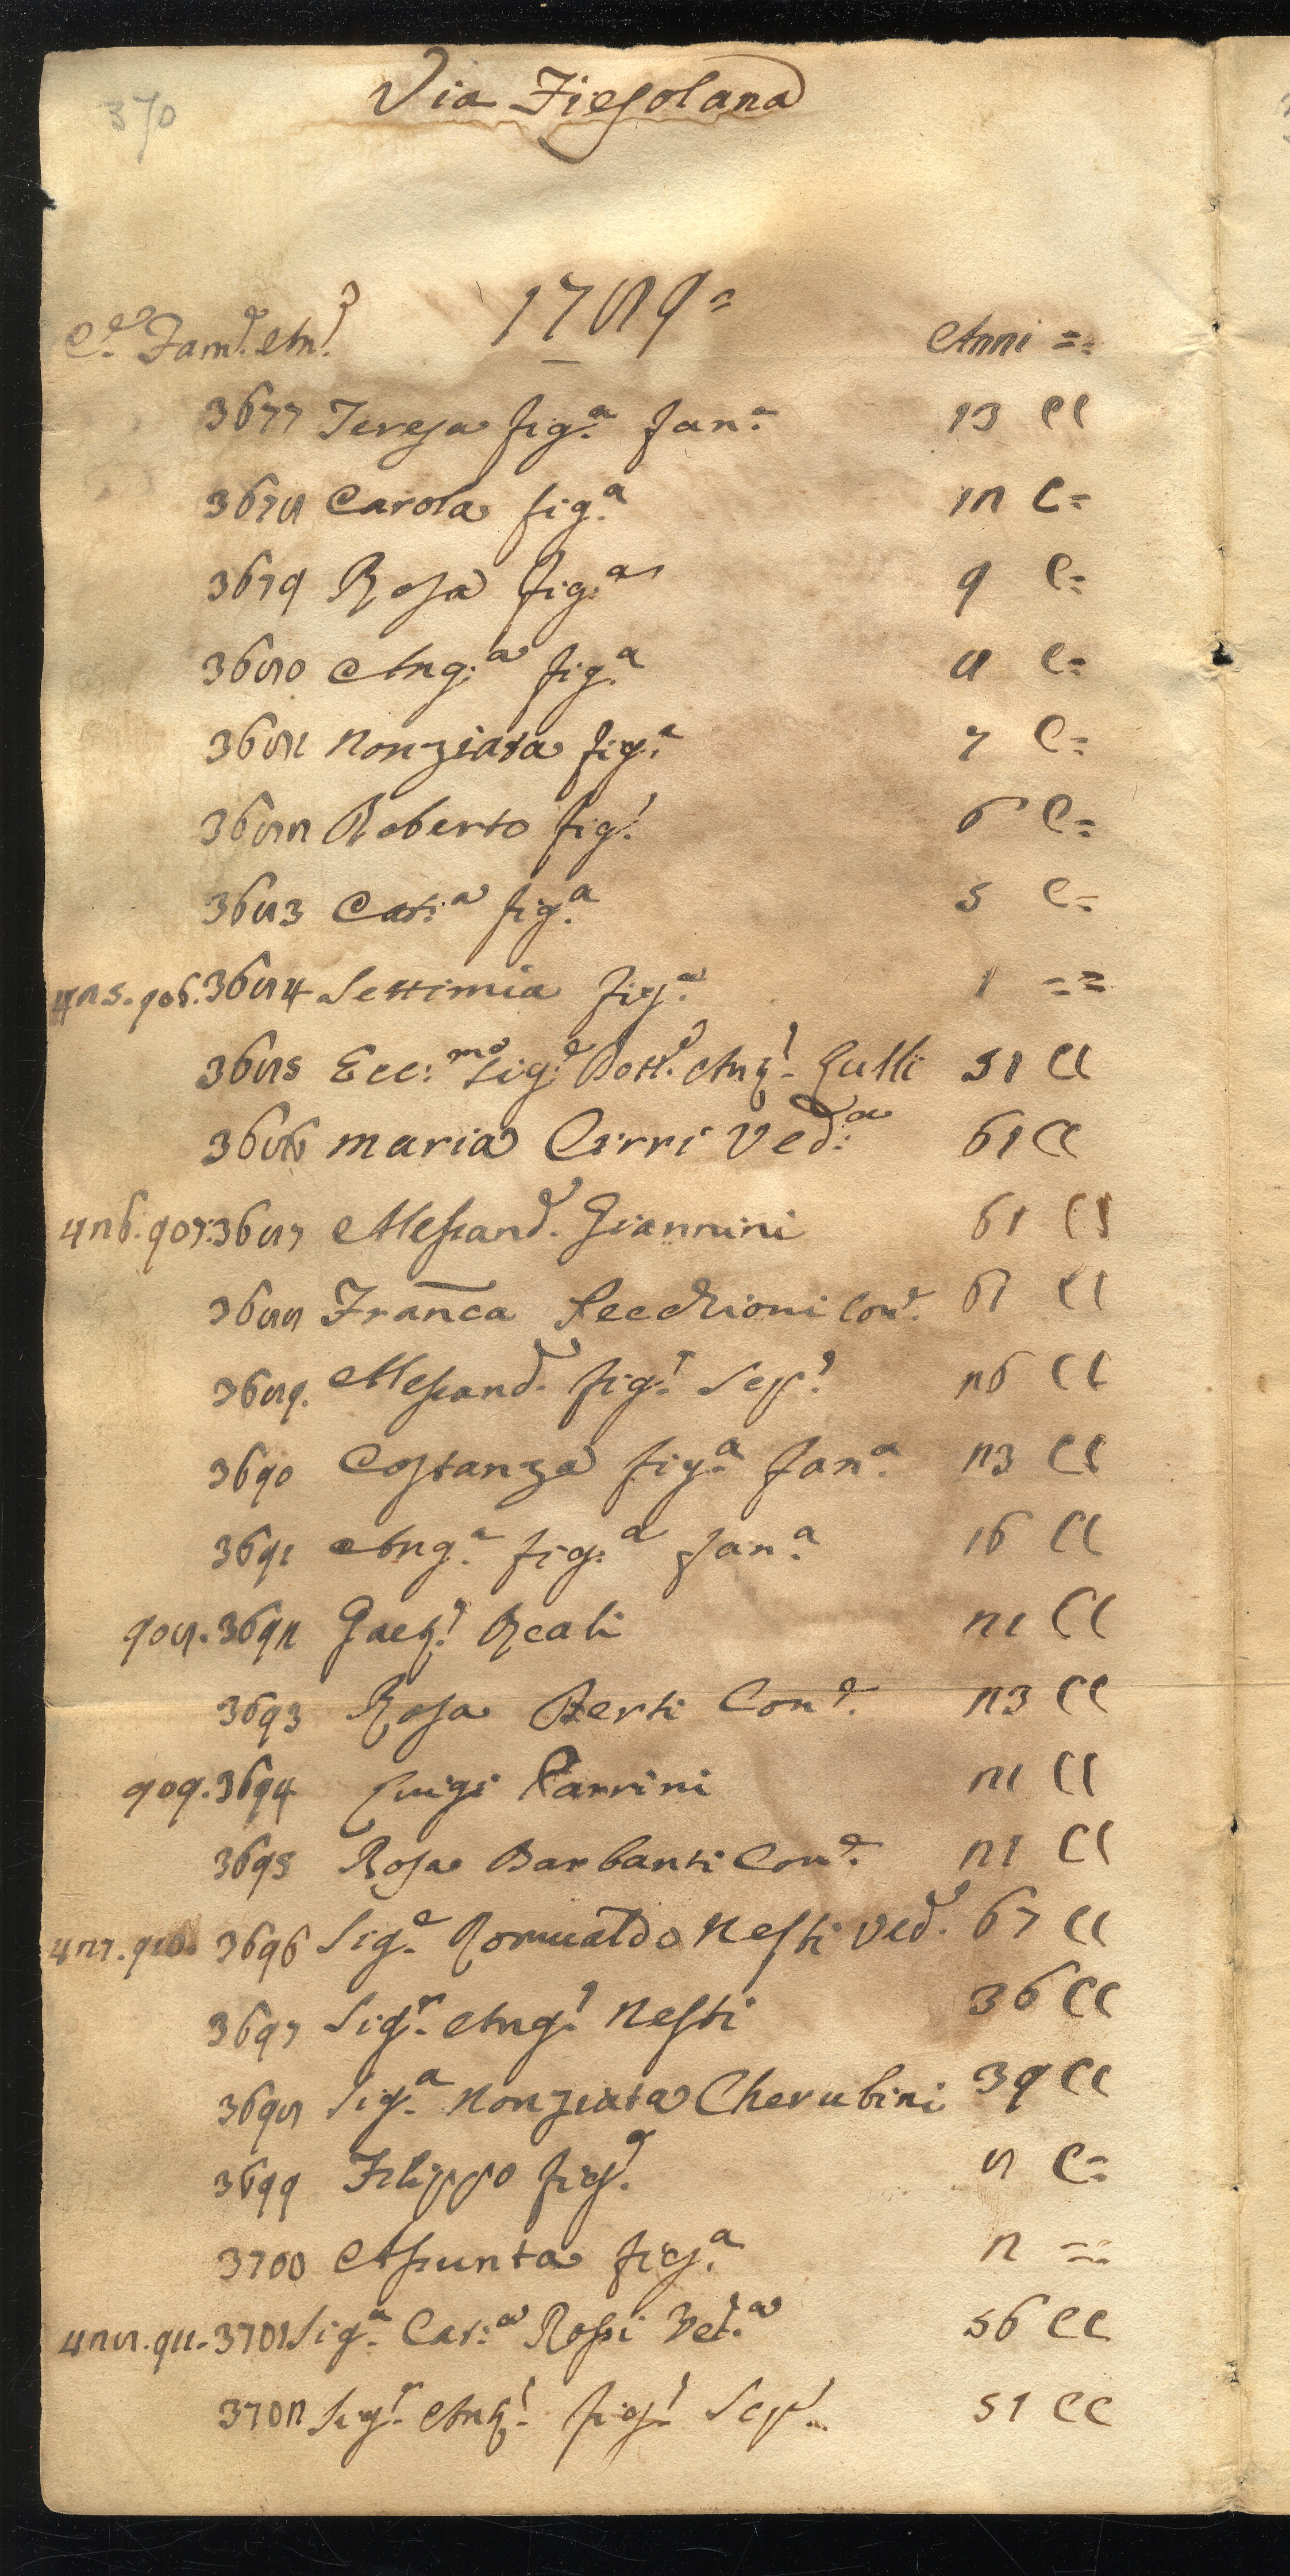 370
Via Fiesolana
1789=
C.e Fam.e An.e Anni =
3677 Teresa fig.a fan.a 13 CC
3678 Carola fig.a 12 C=
3679 Rosa fig.a 9 C=
3680 Ang:a fig.a 8 C=
3681 Nonziata fig.a 7 C=
3682 Roberto fig.o 6 C=
3683 Cat:a fig.a 5 C=
425. 906. 3684 Settimia fig.a 1 ==
3685 Ecc:mo Sig:e Dott.e Ant.o Lulli 51 CC
3686 Maria Cirri Ved:a 61 CC
426. 907. 3687 Alessand.o Giannini 61 CC
3688 Franca Secchioni Con.e 61 CC
3689. Alessand.o fig.o Scp.o 26 CC
3690 Costanza fig.a fan.a 23 CC
3691 Ang.a fig.a fan.a 16 CC
908. 3692 Gaet.o Reali 21 CC
3693 Rosa Berti Con.e 23 CC
909. 3694 Luigi Parrini 21 CC
3695 Rosa Barbanti Con.e 21 CC
427. 910. 3696 Sig.e Romualdo Nesti Ved.o 67 CC
3697 Sig.r Ang.o Nesti 36 CC
3698 Sig.a Nonziata Cherubini 39 CC
3699 Filippo fig.o 8 C=
3700 Assunta fig.a 2 ==
428. 911. 3701 Sig.a Cat:a Rossi Ved.a 56 CC
3702 Sig.r Ant.o fig.o Scp.o 51 CC